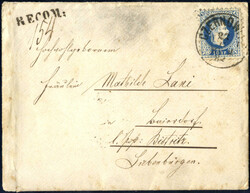 RECOM:
154
Hochwohlgeboren
Fräulein Mathilde Zani
in Baierdorf
Post Bistritz
Siebenbürgen